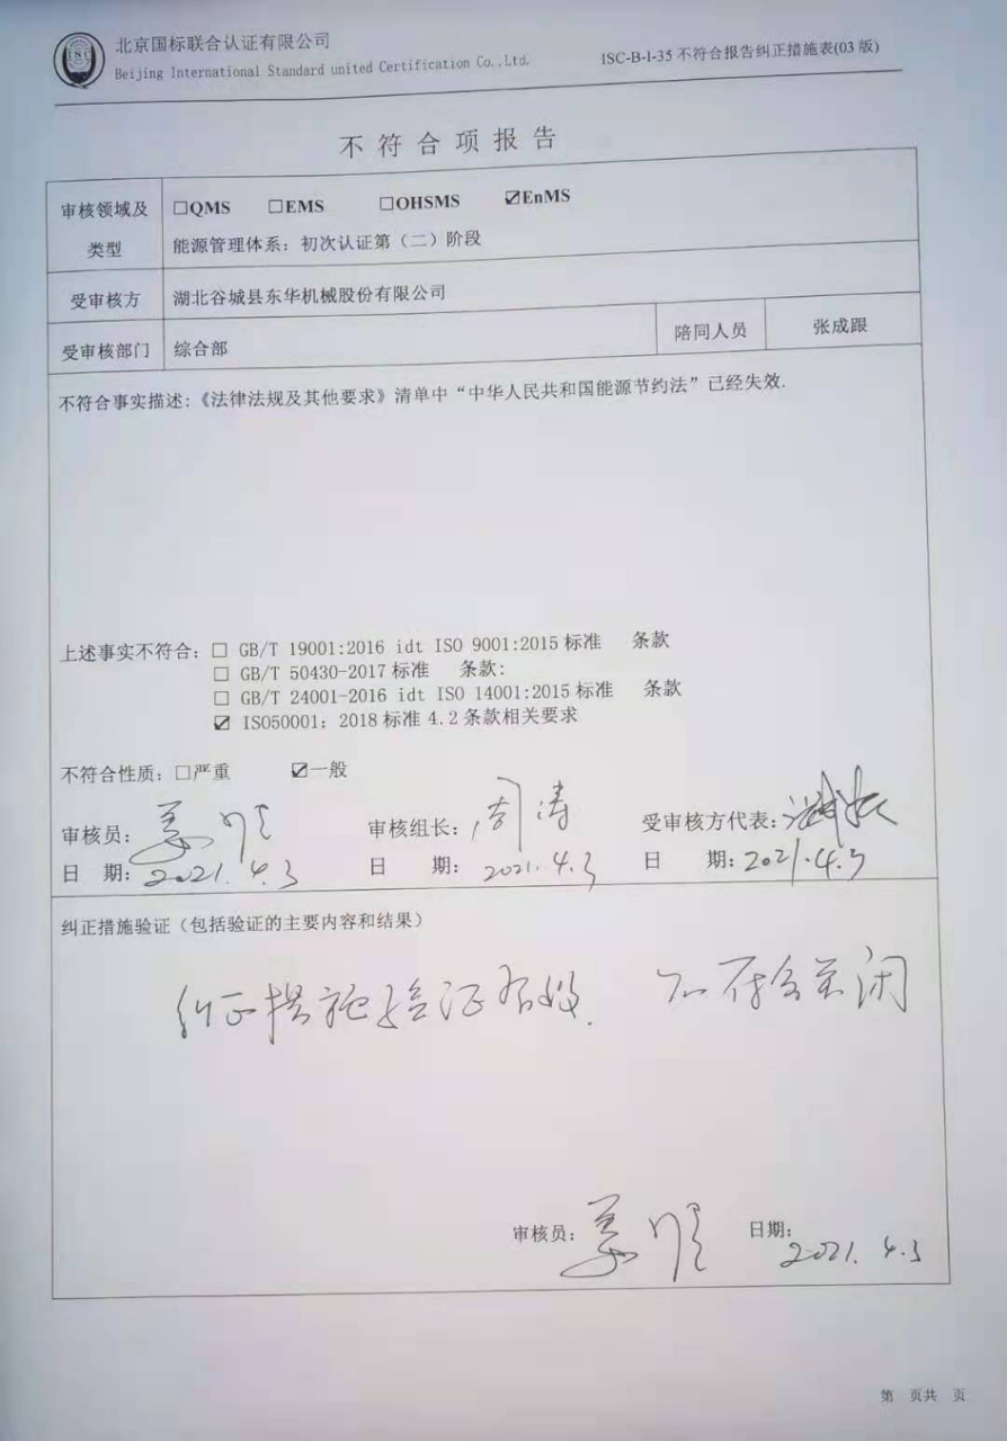 北京国标联合认证有限公司
Beijing International Standard united Certification Co.,Ltd.
ISC-B-I-35 不符合报告纠正措施表(03 版)
ISC
不符合项报告
审核领域及类型
□QMS □EMS □OHSMS ☑EnMS
能源管理体系：初次认证第（二）阶段
受审核方 湖北谷城县东华机械股份有限公司
受审核部门 综合部 陪同人员 张成跟
不符合事实描述：《法律法规及其他要求》清单中“中华人民共和国能源节约法”已经失效.
上述事实不符合：□ GB/T 19001:2016 idt ISO 9001:2015 标准 条款
□ GB/T 50430-2017 标准 条款：
□ GB/T 24001-2016 idt ISO 14001:2015 标准 条款
☑ ISO50001：2018 标准 4.2 条款相关要求
不符合性质：□严重 ☑一般
审核员： 审核组长：周涛 受审核方代表：
日 期：2021.4.3 日 期：2021.4.3 日 期：2021.4.3
纠正措施验证（包括验证的主要内容和结果）
纠正措施验证有效. 不符合关闭
审核员： 日期：2021.4.3
第 页共 页